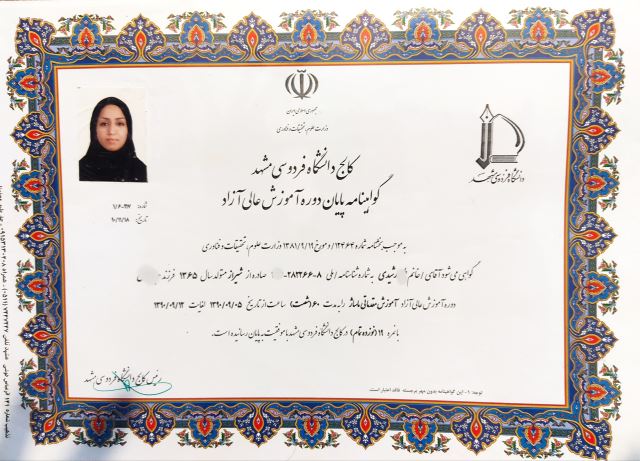 جمهوری اسلامی ایران
وزارت علوم، تحقیقات و فناوری
کالج دانشگاه فردوسی مشهد
گواهینامه پایان دوره آموزش عالی آزاد
دانشگاه فردوسی مشهد
شماره:
تاریخ: ۹۰/۱۱/۱۸
به موجب بخشنامه شماره ۱۲۴۶۴/و مورخ ۱۳۸۱/۹/۱۹ وزارت علوم، تحقیقات و فناوری
گواهی می شود آقای / خانم رشیدی به شماره شناسنامه / ملی ۲۸۳۲۶۶۰۸ صادره از شیراز متولد سال ۱۳۶۵ فرزند
دوره آموزش عالی آزاد آموزش مقدماتی ماساژ را به مدت ۶۰ (شصت) ساعت از تاریخ ۱۳۹۰/۰۹/۰۵ لغایت ۱۳۹۰/۰۹/۱۲
با نمره ۱۹ (نوزده تمام) در کالج دانشگاه فردوسی مشهد با موفقیت به پایان رسانیده است.
رئیس کالج دانشگاه فردوسی مشهد
توجه: ۱- این گواهینامه بدون مهر برجسته فاقد اعتبار است.